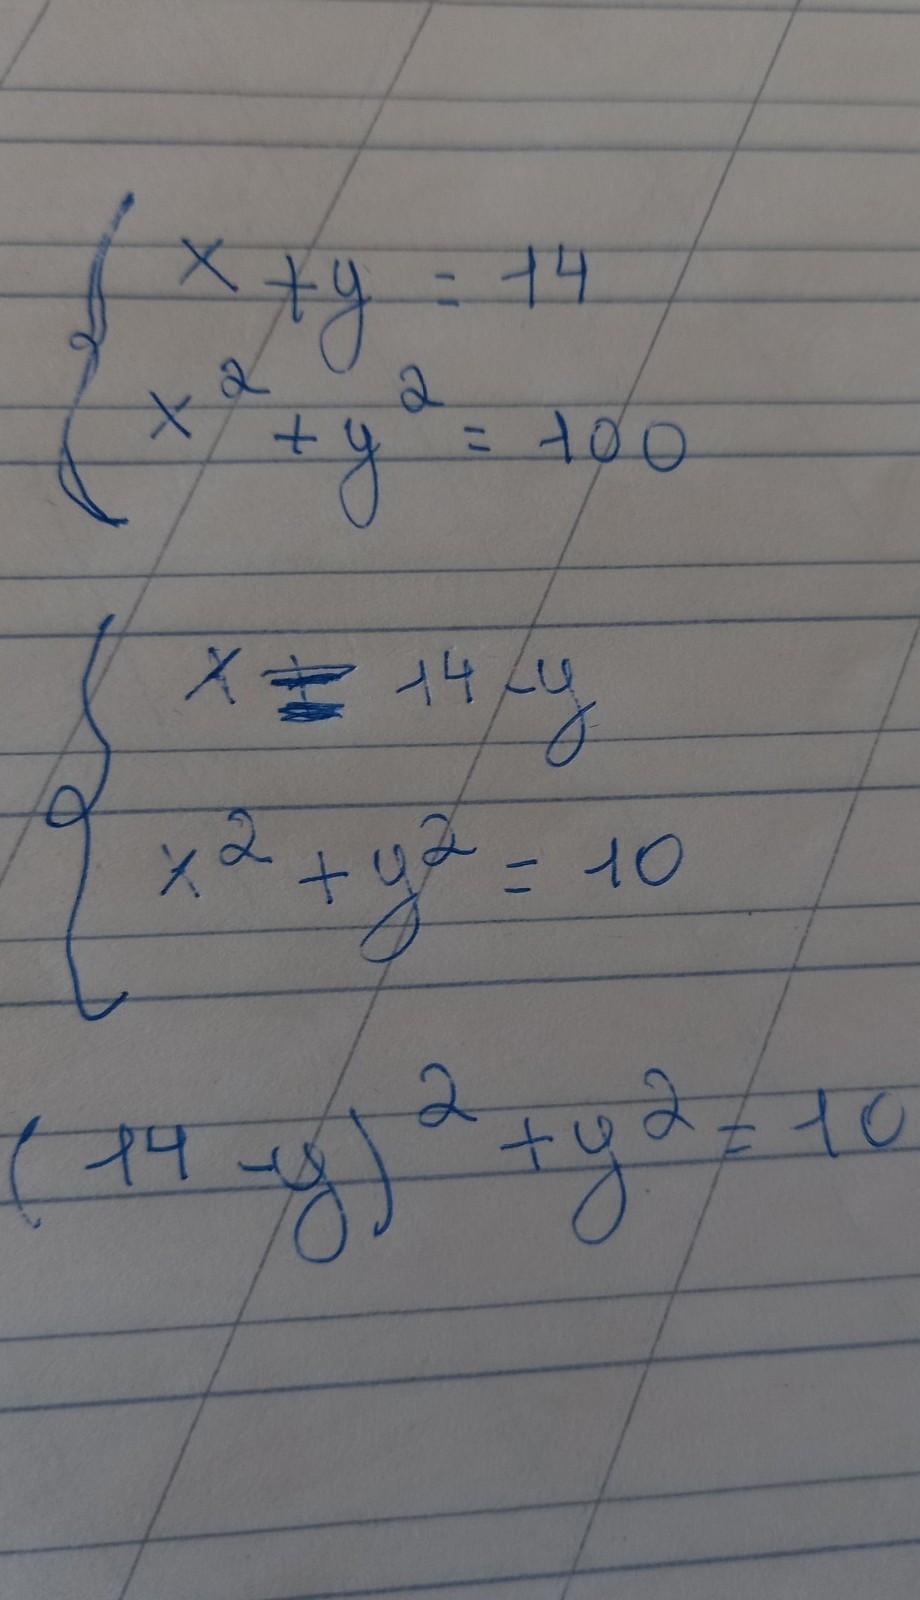 x + y = 14
x² + y² = 100
x = 14 - y
x² + y² = 10
(14 - y)² + y² = 10